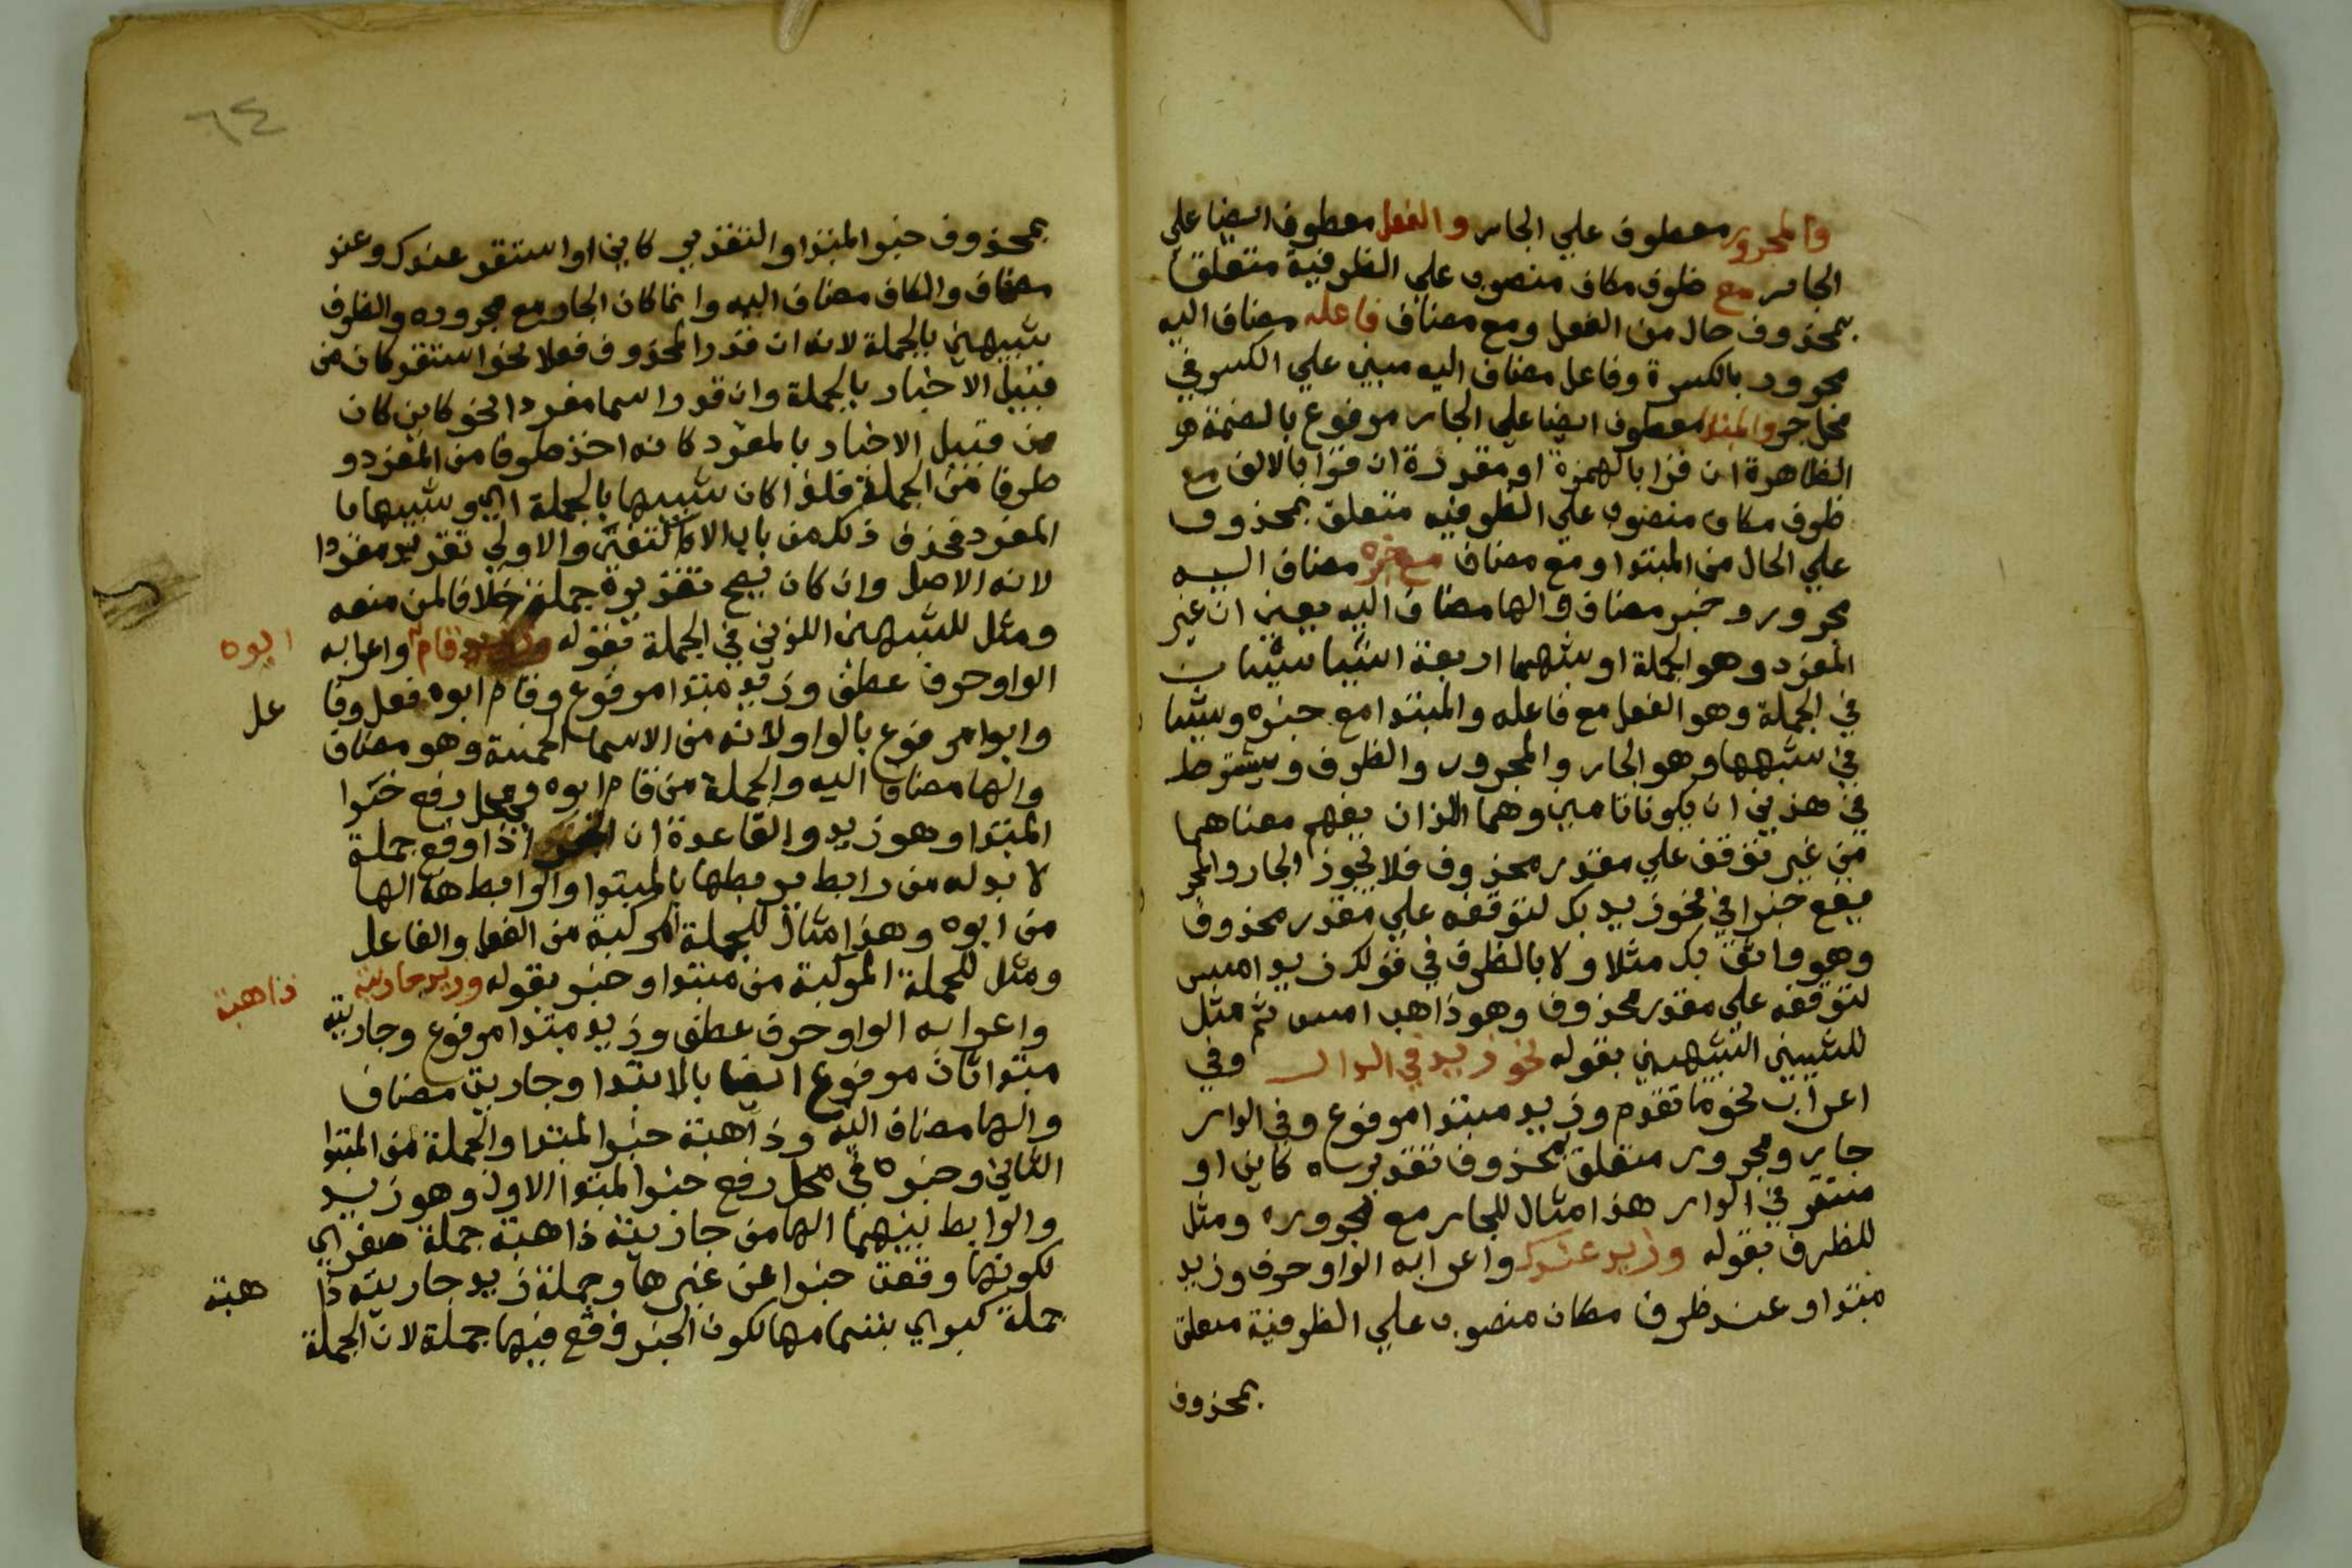 والمجرور معطوف علي الجار والفعل معطوف ايضا علي
الجار مع ظرف مكان منصوب علي الظرفية متعلق
بمحذوف حال من الفعل ومع مضاف فاعله مضاف اليه
مجرور بالكسرة وفاعل مضاف اليه مبني علي الكسر في
محل جر والمبتدا معطوف ايضا علي الجار مرفوع بالضمة
الظاهرة ان قرا بالهمزة او مقدرة ان قرا بالالف مع
ظرف مكان منصوب علي الظرفيه متعلق بمحذوف
علي الحال من المبتدا ومع مضاف مع خبره مضاف اليه
مجرور وخبر مضاف والها مضاف اليه يعني ان غير
المفرد وهو الجملة او شبهها اربعة اشيا شيئان
في الجملة وهو الفعل مع فاعله والمبتدا مع خبره وشيئا
في شبهها وهو الجار والمجرور والظرف ويشترط
في هذين ان يكونا تامين وهما اللذان يفهم معناهما
من غير توقف علي مقدر محذوف فلا يجوز الجار والمجر
يقع خبرا في نحو زيد بك لتوقفه علي مقدر محذوف
وهو واثق بك مثلا ولا بالظرف في قولك زيد امس
لتوقفه علي مقدر محذوف وهو ذاهب امس ثم مثل
للشيين الشبهين بقوله نحو زيد في الدار وفي
اعراب نحو ما تقدم وزيد مبتدا مرفوع وفي الدار
جار ومجرور متعلق بمحذوف تقديره كاين او
مستقر في الدار هذا مثال للجار مع مجروره ومثل
للظرف بقوله وزيد عندك واعرابه الواو حرف وزيد
مبتدا وعند ظرف مكان منصوب علي الظرفية متعلق
بمحذوف
٦٤
بمحذوف خبر المبتدا والتقدير كاين او استقر عندك وعند
مضاف والكاف مضاف اليه وانما كان الجار مع مجروره والظرف
شبيهين بالجملة لانه ان قدر المحذوف فعلا نحو استقر كان من
قبيل الاخبار بالجملة وان قدر اسما مفردا نحو كاين كان
من قبيل الاخبار بالمفرد كانه اخذ طرفا من المفرد و
طرفا من الجملة فلذا كان شبيها بالجملة اي وشبيها با
المفرد فحذف ذلك من باب الاكتفا والاولي تقديره مفردا
لانه الاصل وان كان يصح تقديره جملة خلافا لمن منعه
ومثل للشبهين اللذين في الجملة بقوله وزيد قام واعرابه
ابوه
الواو حرف عطف وزيد مبتدا مرفوع وقام ابوه فعل وفا
عل
وابوا مرفوع بالواو لانه من الاسما الخمسة وهو مضاف
والها مضاف اليه والجملة من قام ابوه في محل رفع خبرا
المبتدا وهو زيد والقاعدة ان الخبر اذا وقع جملة
لا بد له من رابط يربطها بالمبتدا والرابط هنا الها
من ابوه وهذا مثال للجملة المركبة من الفعل والفاعل
ومثل للجملة المركبة من مبتدا وخبر بقوله وزيد جاريته
ذاهبة
واعرابه الواو حرف عطف وزيد مبتدا مرفوع وجاريته
مبتدا ثان مرفوع ايضا بالابتدا وجارية مضاف
والها مضاف اليه وذاهبة خبر المبتدا والجملة من المبتدا
الثاني وخبره في محل رفع خبر المبتدا الاول وهو زيد
والرابط بينهما الها من جاريته ذاهبة جملة صغري
لكونها وقعت خبرا عن غيرها وجملة زيد جاريته ذا
هبة
جملة كبري بتمامها لكون الخبر وقع فيها جملة لان الجملة